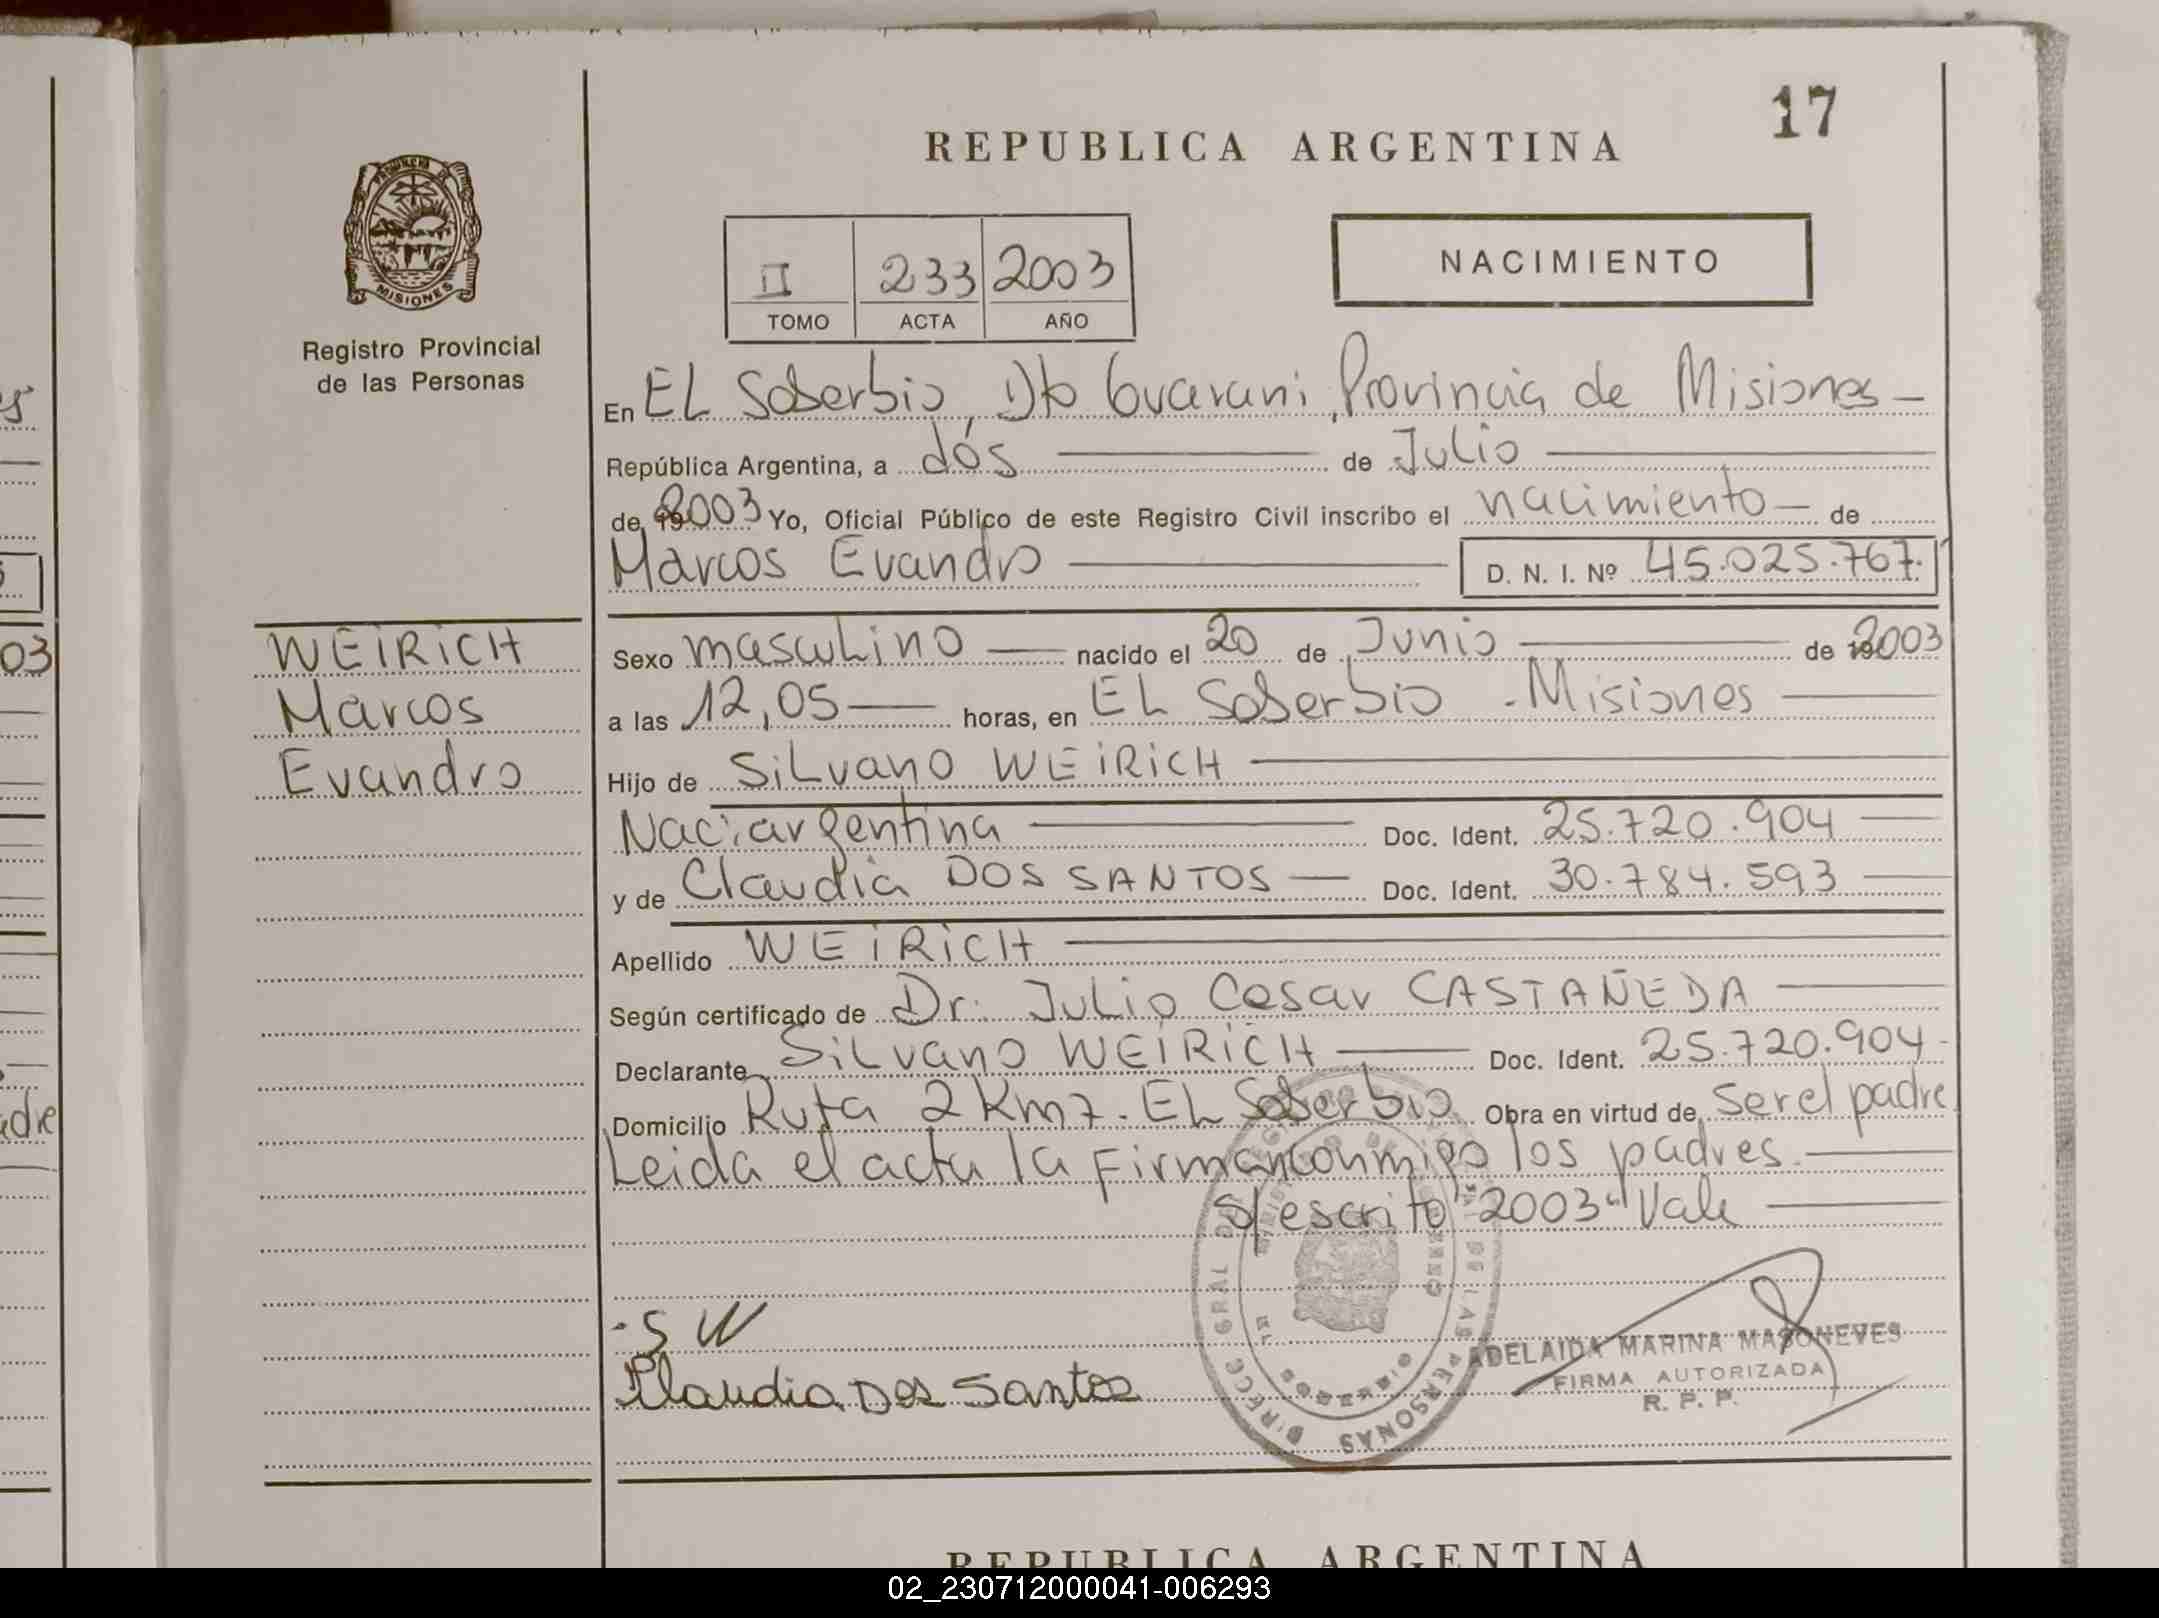 17
REPUBLICA ARGENTINA
PROVINCIA DE
MISIONES
Registro Provincial
de las Personas
II 233 2003
TOMO ACTA AÑO
NACIMIENTO
En EL Soberbio, Dto Guarani, Provincia de Misiones
República Argentina, a dós de Julio
de 2003 Yo, Oficial Público de este Registro Civil inscribo el nacimiento de
Marcos Evandro D. N. I. Nº 45.025.767.
WEIRICH
Marcos
Evandro
Sexo masculino nacido el 20 de Junio de 2003
a las 12,05 horas, en EL Soberbio - Misiones
Hijo de Silvano WEIRICH
Nac: argentina Doc. Ident. 25.720.904
y de Claudia DOS SANTOS Doc. Ident. 30.784.593
Apellido WEIRICH
Según certificado de Dr. Julio Cesar CASTAÑEDA
Declarante Silvano WEIRICH Doc. Ident. 25.720.904
Domicilio Ruta 2 Km 7. EL Soberbio Obra en virtud de ser el padre
Leida el acta la Firman conmigo los padres.
S/escrito "2003" Vale
S W
Claudia Dos Santos
ADELAIDA MARINA MASONEVES
FIRMA AUTORIZADA
R. P. P.
REPUBLICA ARGENTINA
02_230712000041-006293